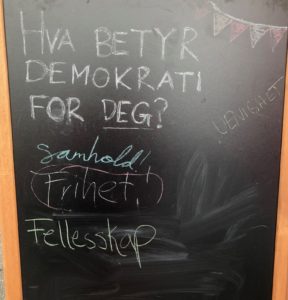 HVA BETYR
DEMOKRATI
FOR DEG?
UENIGHET
samhold!
Frihet!
Fellesskap